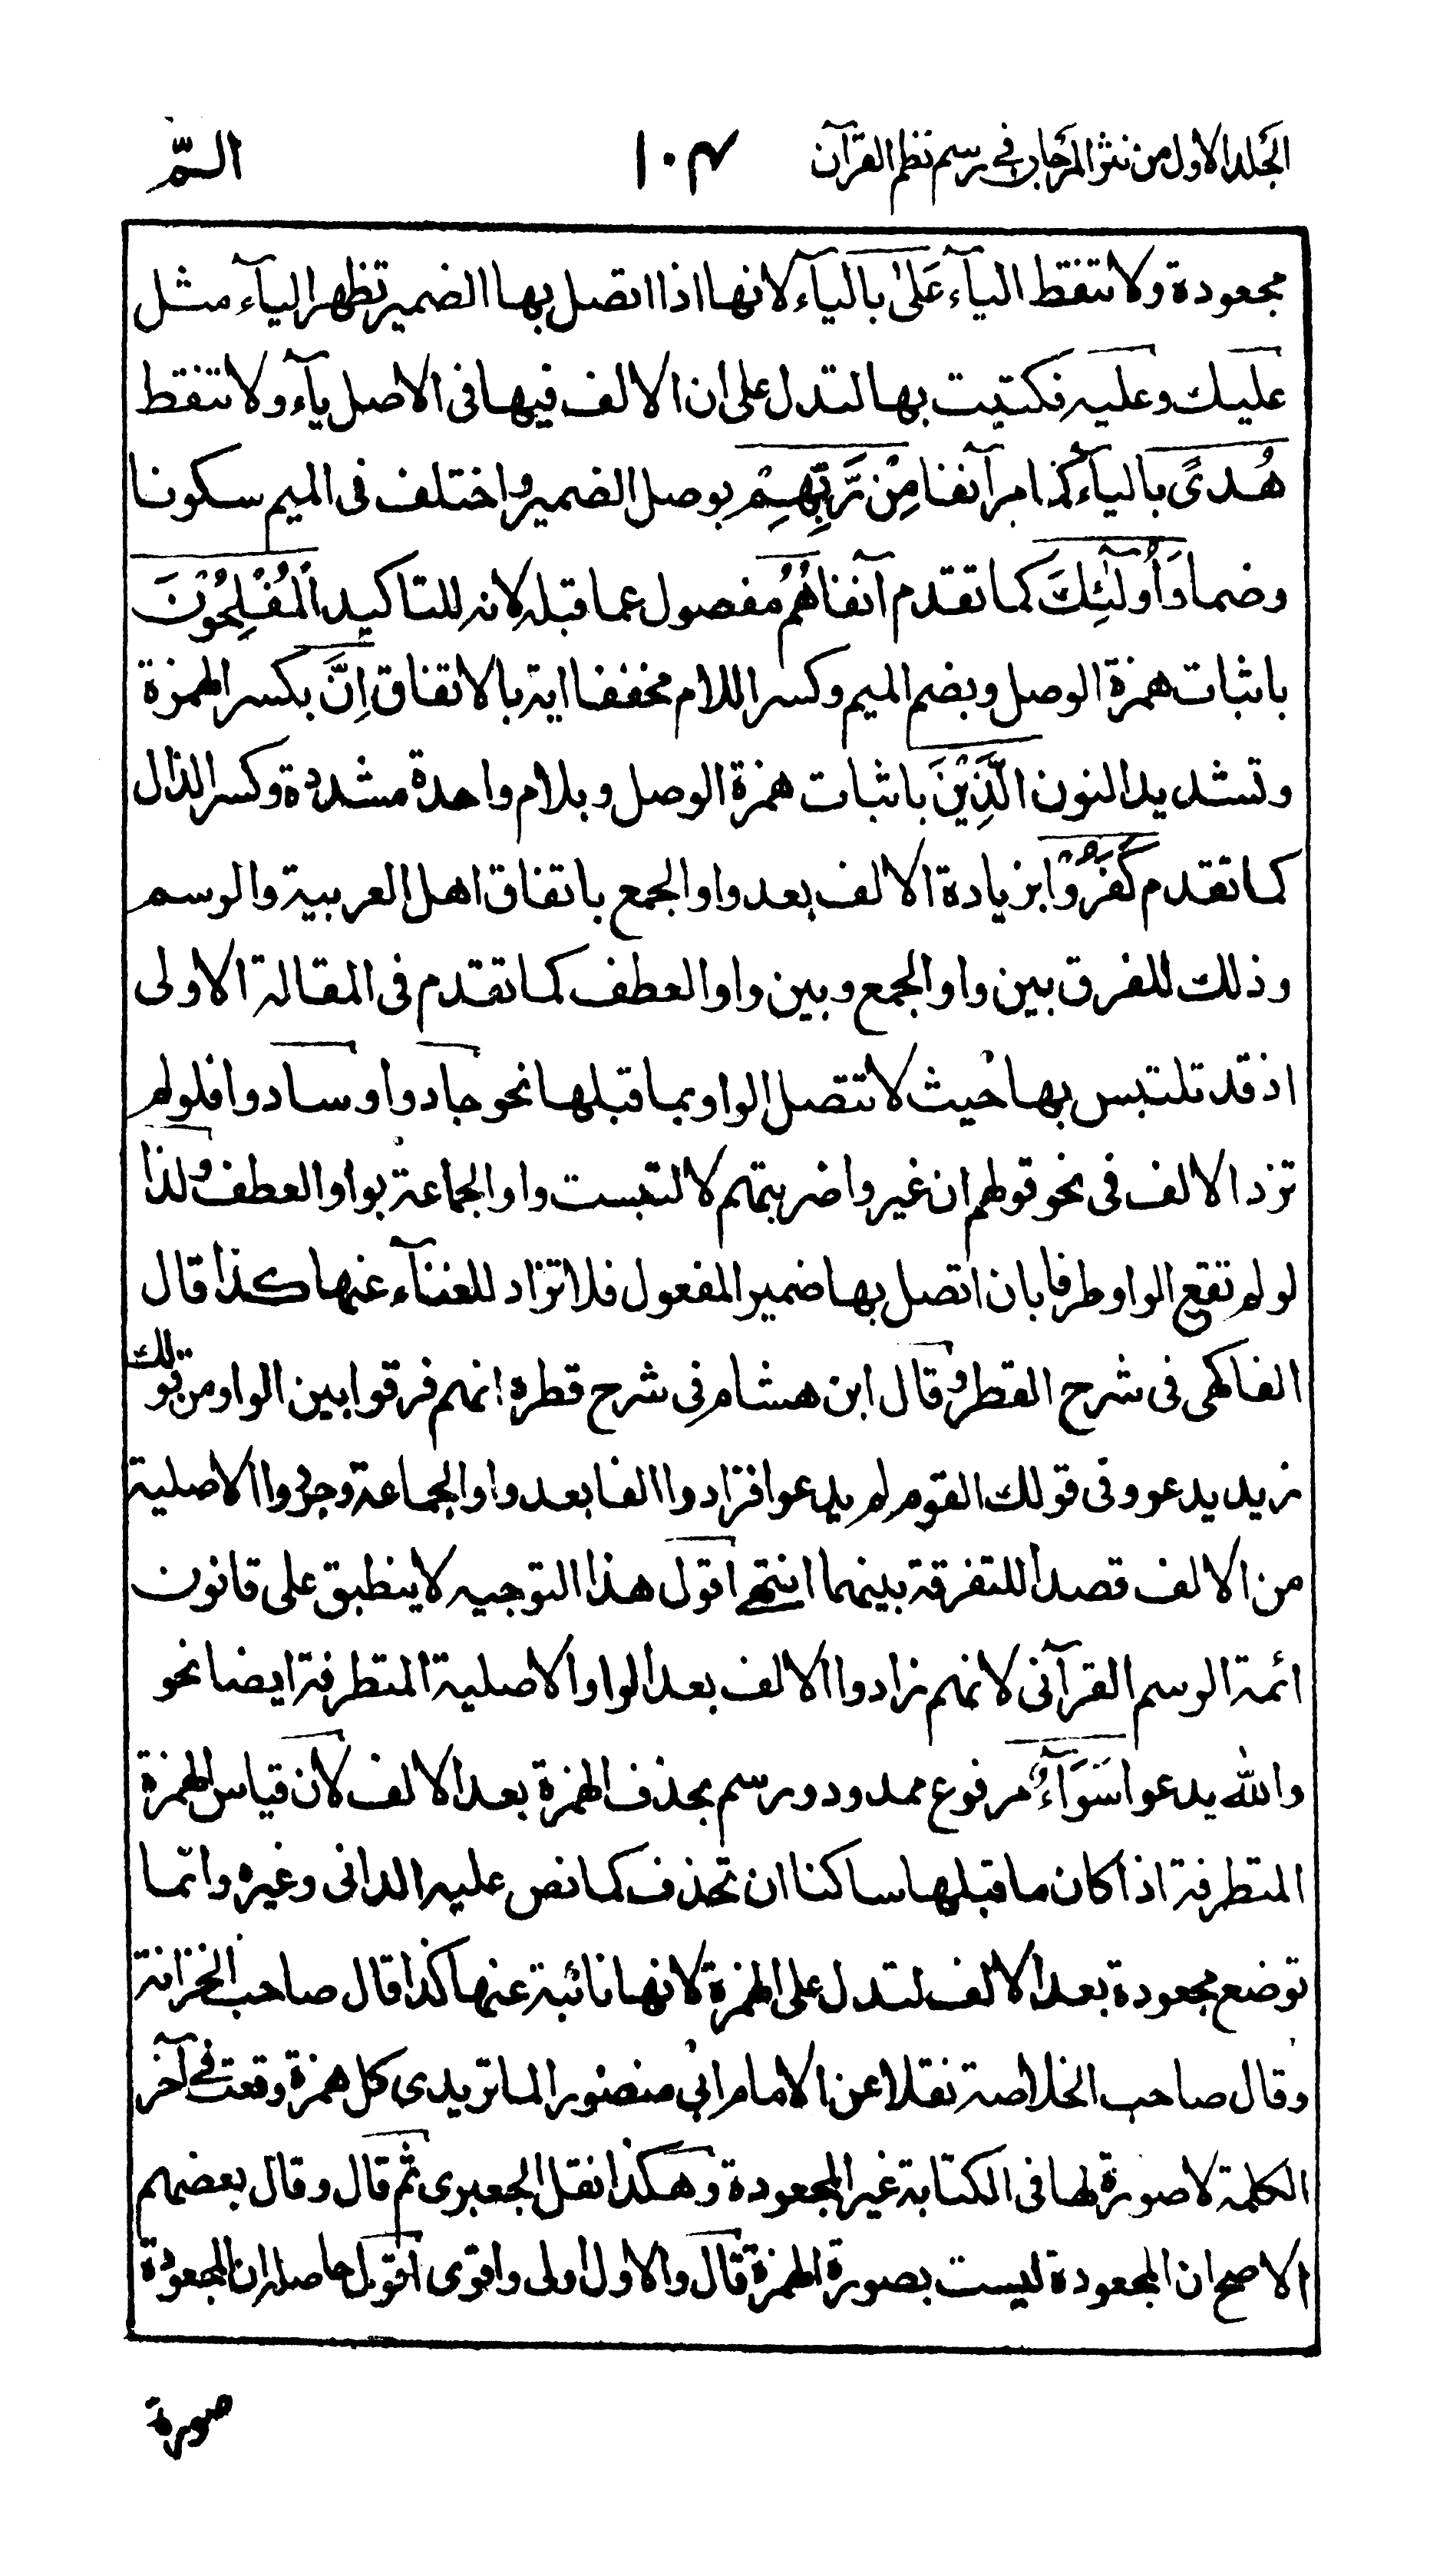 الجلد الاول من نثر المرجان فى رسم نظم القرآن ١٠٣ الـمّ
مجعودة ولا تنقط اليآء عَلىٰ باليآء لانها اذا اتصل بها الضمير تظهر اليآء مثل
عليك وعليه فكتبت بها لتدل على ان الالف فيها فى الاصل يآء ولا تنقط
هُدًى باليآء كما مر آنفا مِنْ رَّبِّهِمْ بوصل الضمير واختلف فى الميم سكونا
وضما وَأُولٰٓئِكَ كما تقدم آنفا هُمُ مفصول عما قبله لانه للتاكيد الْمُفْلِحُوْنَ
باثبات همزة الوصل وبضم الميم وكسر اللام مخففا اية بالاتفاق اِنَّ بكسر الهمزة
وتشديد النون الَّذِيْنَ باثبات همزة الوصل وبلام واحدة مشددة وكسر الذال
كما تقدم كَفَرُوْا بزيادة الالف بعد واو الجمع باتفاق اهل العربية والرسم
وذلك للفرق بين واو الجمع وبين واو العطف كما تقدم فى المقالة الاولى
اذ قد تلتبس بها حيث لا تتصل الواو بما قبلها نحو جادوا وسادوا فلو لم
تزد الالف فى نحو قولهم ان غيروا ضربتهم لالتبست واو الجماعة بواو العطف ولذا
لو لم تقع الواو طرفا بان اتصل بها ضمير المفعول فلا تزاد للغنآء عنها كذا قال
الفاكهى فى شرح القطر وقال ابن هشام فى شرح قطره انهم فرقوا بين الواو من قولك
زيد يدعو وفى قولك القوم لم يدعوا فزادوا الفا بعد واو الجماعة وجردوا الاصلية
من الالف قصدا للتفرقة بينهما انتهى اقول هذا التوجيه لا ينطبق على قانون
ائمة الرسم القرآنى لانهم زادوا الالف بعد الواو الاصلية المتطرفة ايضا نحو
والله يدعوا سَوَآءٌ مرفوع ممدود ورسم بحذف الهمزة بعد الالف لان قياس الهمزة
المتطرفة اذا كان ما قبلها ساكنا ان تحذف كما نص عليه الدانى وغيره وانما
توضع مجعودة بعد الالف لتدل على الهمزة لانها نائبة عنها كذا قال صاحب الخزانة
وقال صاحب الخلاصة نقلا عن الامام ابى منصور الماتريدى كل همزة وقعت فى آخر
الكلمة لا صورة لها فى الكتابة غير المجعودة وهكذا نقل الجعبرى ثم قال وقال بعضهم
الاصح ان المجعودة ليست بصورة الهمزة قال والاول اولى واقوى اقول حاصله ان المجعودة
صورة